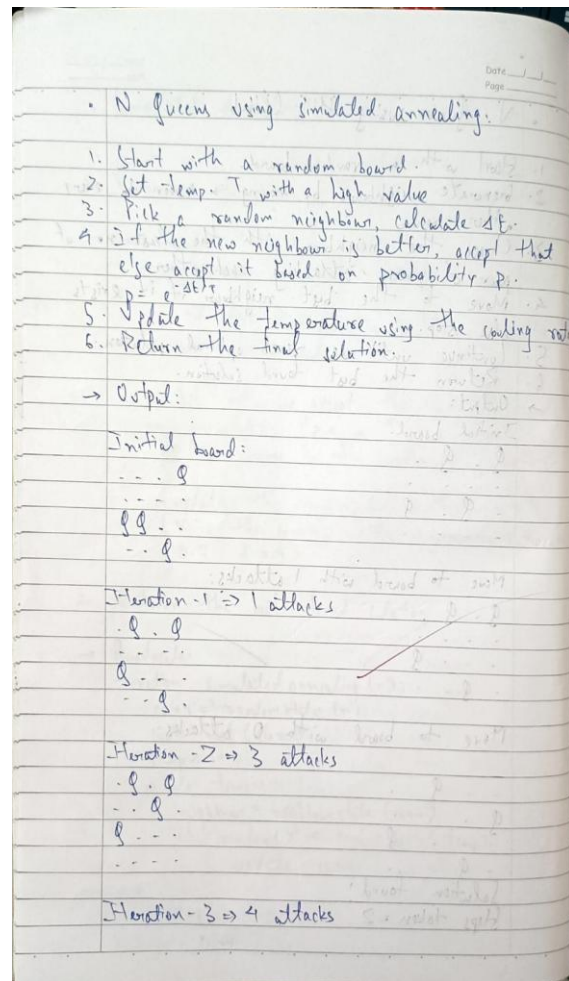 Date
Page
• N Queens using simulated annealing:
1. Start with a random board.
2. Set temp. T with a high value
3. Pick a random neighbour, calculate ΔE.
4. If the new neighbour is better, accept that
else accept it based on probability p.
p = e^-ΔE/T
5. Update the temperature using the cooling rate
6. Return the final solution.
→ Output:
Initial board:
. . . Q
. . . .
Q Q . .
. . Q .
Iteration-1 => 1 attacks
. Q . Q
. . . .
Q . . .
. . Q .
Iteration-2 => 3 attacks
. Q . Q
. . Q .
Q . . .
. . . .
Iteration-3 => 4 attacks